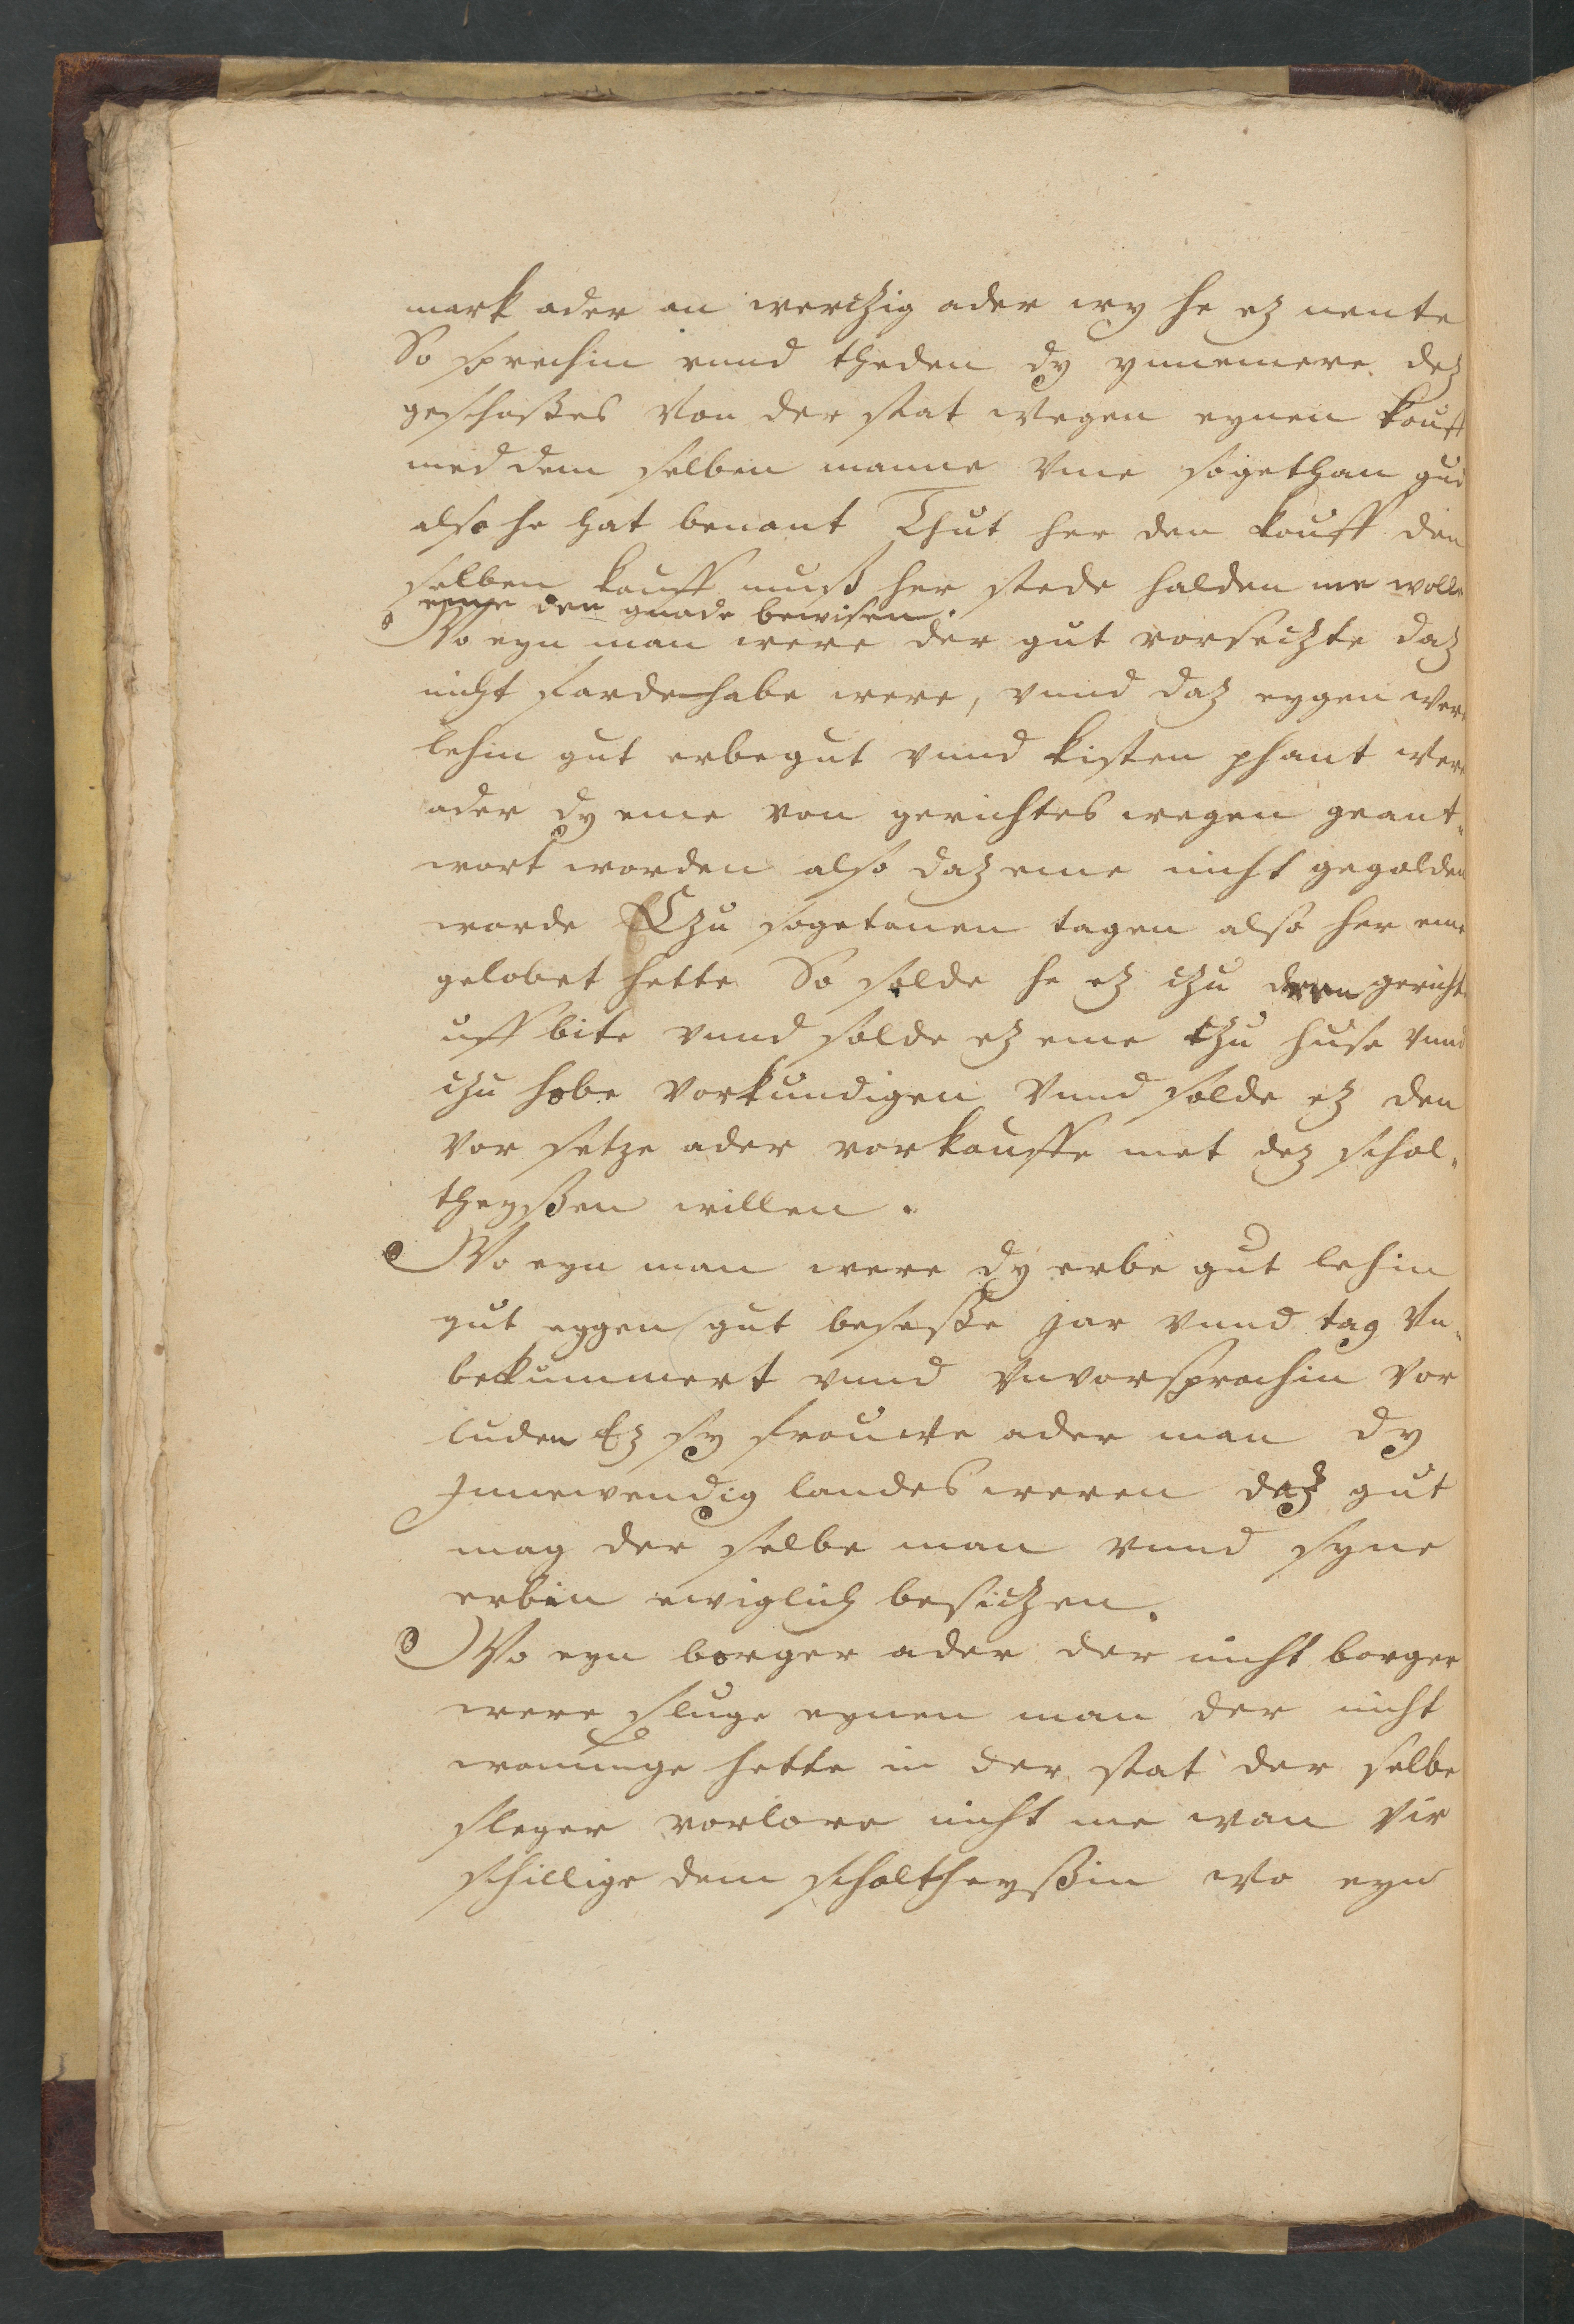 mark ader an werczig ader wy he ez nente
So sprechin vnnd theden dy ynnemere dez
geschoßes von der stat wegen eynen kouff
med dem selben manne vme sogethan gud
also he hat benant Thut her den kouff den
selben kouff muß her stede halden me wolle
eme den gnade bewisen.
Wo eyn man were der gut vorseczte daz
nicht farde habe were, vnnd daz eygen were
lehin gut erbegut vnnd kisten phant were
ader dy eme von gerichtes wegen geant„
wort worden also daz eme nicht gegolden
worde Czu sogetanen tagen also her eme
gelobet hette So solde he ez czu deren gericht
uff bite vnnd solde ez eme czu huse vnnd
czu hobe vorkundigen vnnd solde ez den
vor setze ader vorkouffe met dez schol„
theyßen willen.
Wo eyn man were dy erbe gut lehin
gut eygen gut beseße jar vnnd tag vn„
bekummert vnnd vnvorsprochin vor
luden Ez sy frouwe ader man dy
Jnnewendig landes weren daz gut
mag der selbe man vnnd syne
erbin ewiglich besiczen.
Wo eyn borger ader der nicht borger
were sluge eynen man der nicht
wonunge hette in der stat der selbe
sleger vorlore nicht me wan vir
schillige dem scholtheyßin Wo eyn